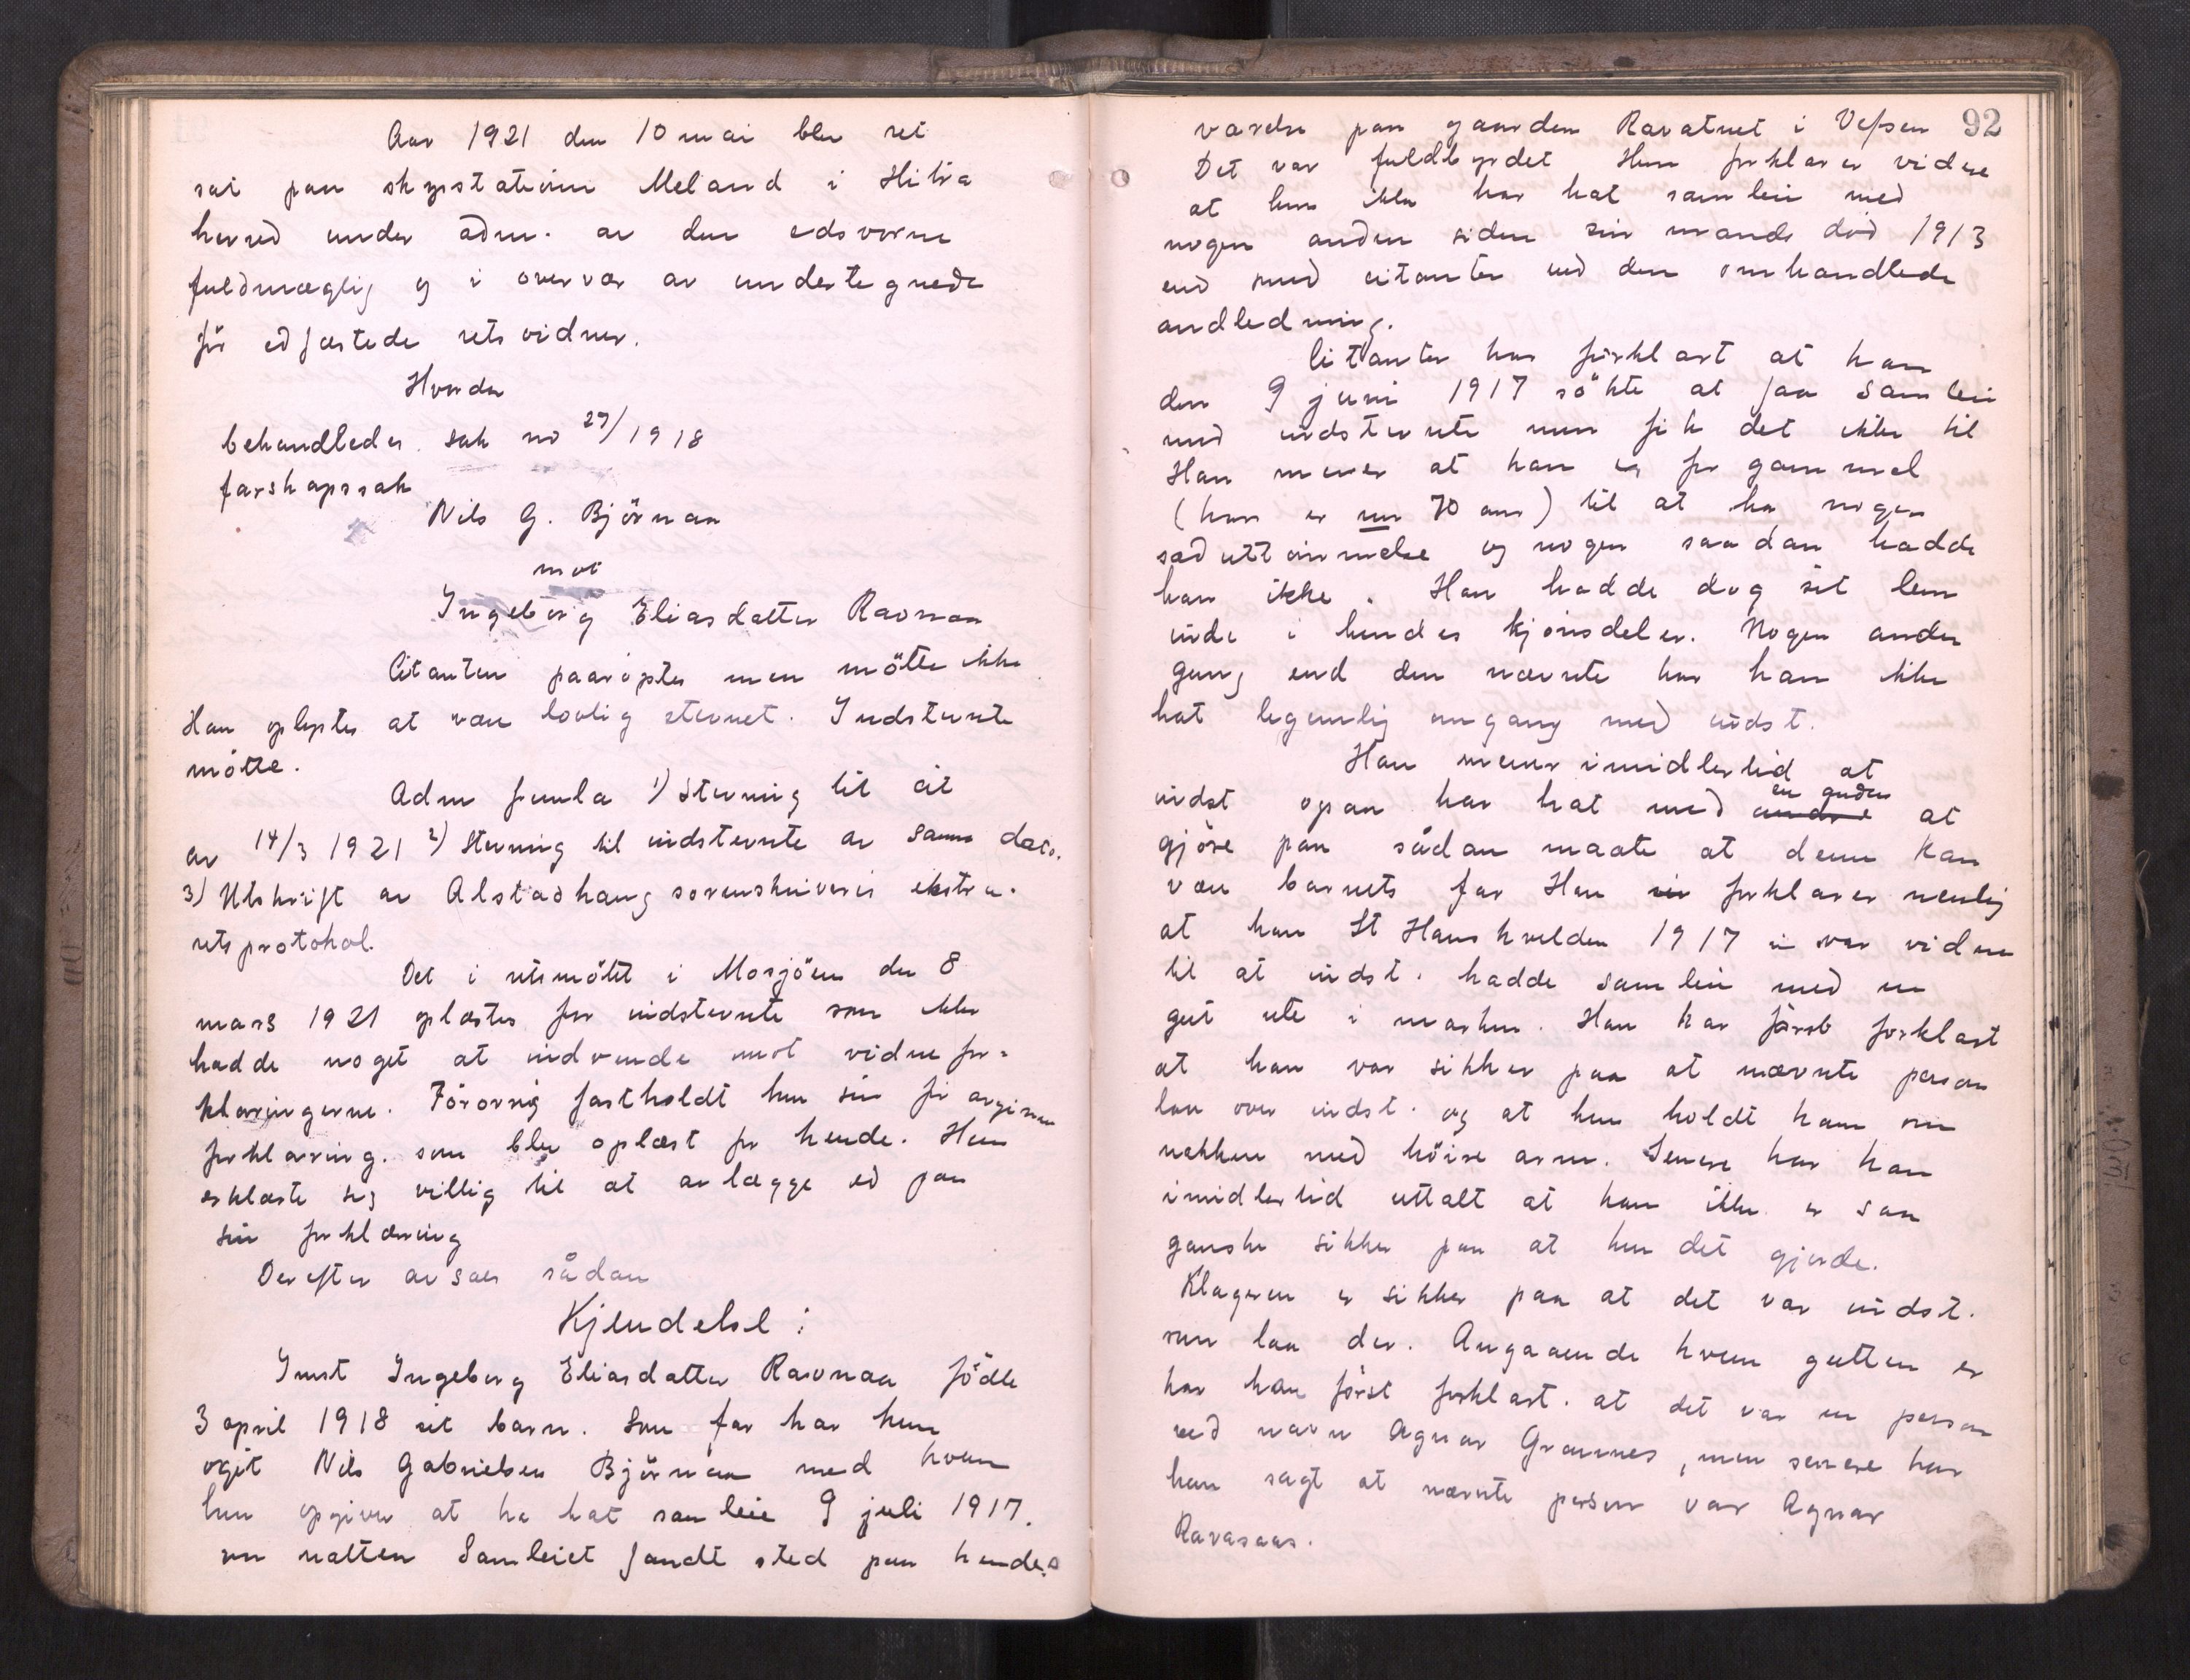 Aar 1921 den 10 mai blev ret
sat paa skysstationen Meland i Hitra
herred under adm. av den edsvorne
fuldmægtig og i overvær av undertegnede
før edfæstede retsvidner.
Hvorda
behandledes sak no 27/1918
farskapssak
Nils G. Björnaa
mot
Ingeborg Eliasdatter Ravnaa
Citanten paaroptes men mötte ikke
Han oplystes at være lovlig stevnet. Indstevnte
mötte.
Adm fremla 1) Stevning til cit
av 14/3 1921 2) Stevning til indstevnte av samme dato.
3) Utskrift av Alstadhaug sorenskriveris ekstra-
retsprotokol.
Det i retsmötet i Mosjöen den 8
mars 1921 oplæstes for indstevnte som ikke
hadde noget at indvende mot vidnefor-
klaringerne. Forövrig fastholdt hun sin för avgivne
forklaring. som blev oplæst for hende. Hun
erklærte sig villig til at avlægge ed paa
sin forklaring
Derefter avsaes sådan
Kjendelse:
Innst Ingeborg Eliasdatter Ravnaa födte
3 april 1918 et barn. Som far har hun
opgit Nils Gabrielsen Björnaa med hvem
hun opgiver at ha hat samleie 9 juli 1917.
om natten Samleiet fandt sted paa hendes
92
værelse paa gaarden Ravatnet i Vefsen
Det var fuldbyrdet Hun forklarer videre
at hun ikke har hat samleie med
nogen anden siden sin mands död 1913
end med citanten ved den omhandlede
andledning.
Citanten har forklart at han
den 9 juni 1917 sökte at faa samleie
med indstevnte men fik det ikke til
Han mener at han er for gammel
(han er nu 70 aar) til at ha nogen
sæduttömmelse og nogen saadan hadde
han ikke. Han hadde dog sit lem
inde i hendes kjönsdeler. Nogen anden
gang end den nævnte har han ikke
hat legemlig omgang med indst.
Han mener imidlertid at
indst ogsaa har hat med andre en anden at
gjöre paa sådan maate at denne kan
være barnets far Han forklarer nemlig
at han St Hanskvelden 1917 var vidne
til at indst. hadde samleie med en
gut ute i marken. Han har först forklart
at han var sikker paa at nævnte person
laa over indst. og at hun holdt ham om
nakken med höire arm. Senere har han
imidlertid uttalt at han ikke er saa
ganske sikker paa at hun det gjorde.
Klageren er sikker paa at det var indst.
som laa der. Angaaende hvem gutten er
har han först forklart. at det var en person
ved navn Agnar Grannes, men senere har
han sagt at nævnte person var Agnar
Ravasaas.